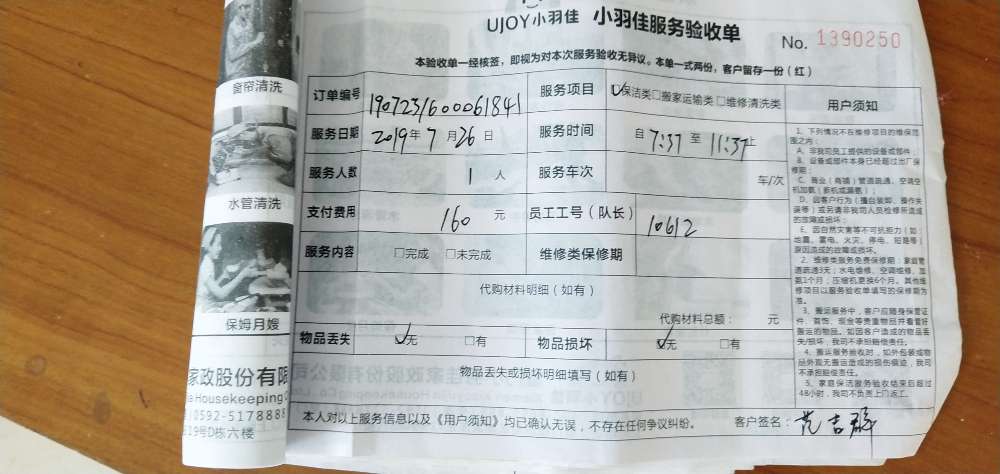 UJOY小羽佳 小羽佳服务验收单
No. 1390250
本验收单一经核签，即视为对本次服务验收无异议。本单一式两份，客户留存一份（红）
窗帘清洗
水管清洗
保姆月嫂
家政股份有限
Housekeeping
0592-5178888
19号D栋六楼
订单编号 1907231600061841 服务项目 ☑保洁类□搬家运输类□维修清洗类
服务日期 2019年7月26日 服务时间 自7:37至11:37止
服务人数 1人 服务车次 车/次
支付费用 160元 员工工号（队长） 10612
服务内容 □完成 □未完成 维修类保修期
代购材料明细（如有）
代购材料总额： 元
物品丢失 ☑无 □有 物品损坏 ☑无 □有
物品丢失或损坏明细填写（如有）
本人对以上服务信息以及《用户须知》均已确认无误，不存在任何争议纠纷。 客户签名：
用户须知
1、下列情况不在维修项目的维保范
围之内：
A、非我司员工提供的设备或部件；
B、设备或部件本身已经超过出厂保
修期；
C、商业（商铺）管道疏通、空调空
机加氨（新机或漏氨）；
D、因客户行为（擅自装卸、操作失
误等）或另请非我司人员检修所造成
的故障或损坏；
E、因自然灾害等不可抗拒力（如：
地震、雷电、火灾、停电、短路等）
原因造成的故障或损坏。
2、维修类服务免费保修期：家庭管
道疏通3天；水电维修、空调维修、加
氨1个月；压缩机更换6个月。其他维
修项目以服务验收单填写的保修期为
准。
3、搬运服务中，客户应随身保管证
件、首饰、现金等贵重物品并看管好
搬运的物品。如因客户造成的物品丢
失/损坏，我司不承担赔偿责任。
4、搬运服务验收时，如外包装或物
品外观无搬运造成的损伤痕迹，我司
不承担赔偿责任。
5、家庭保洁服务验收结束后超过
48小时，我司不负责上门返工。